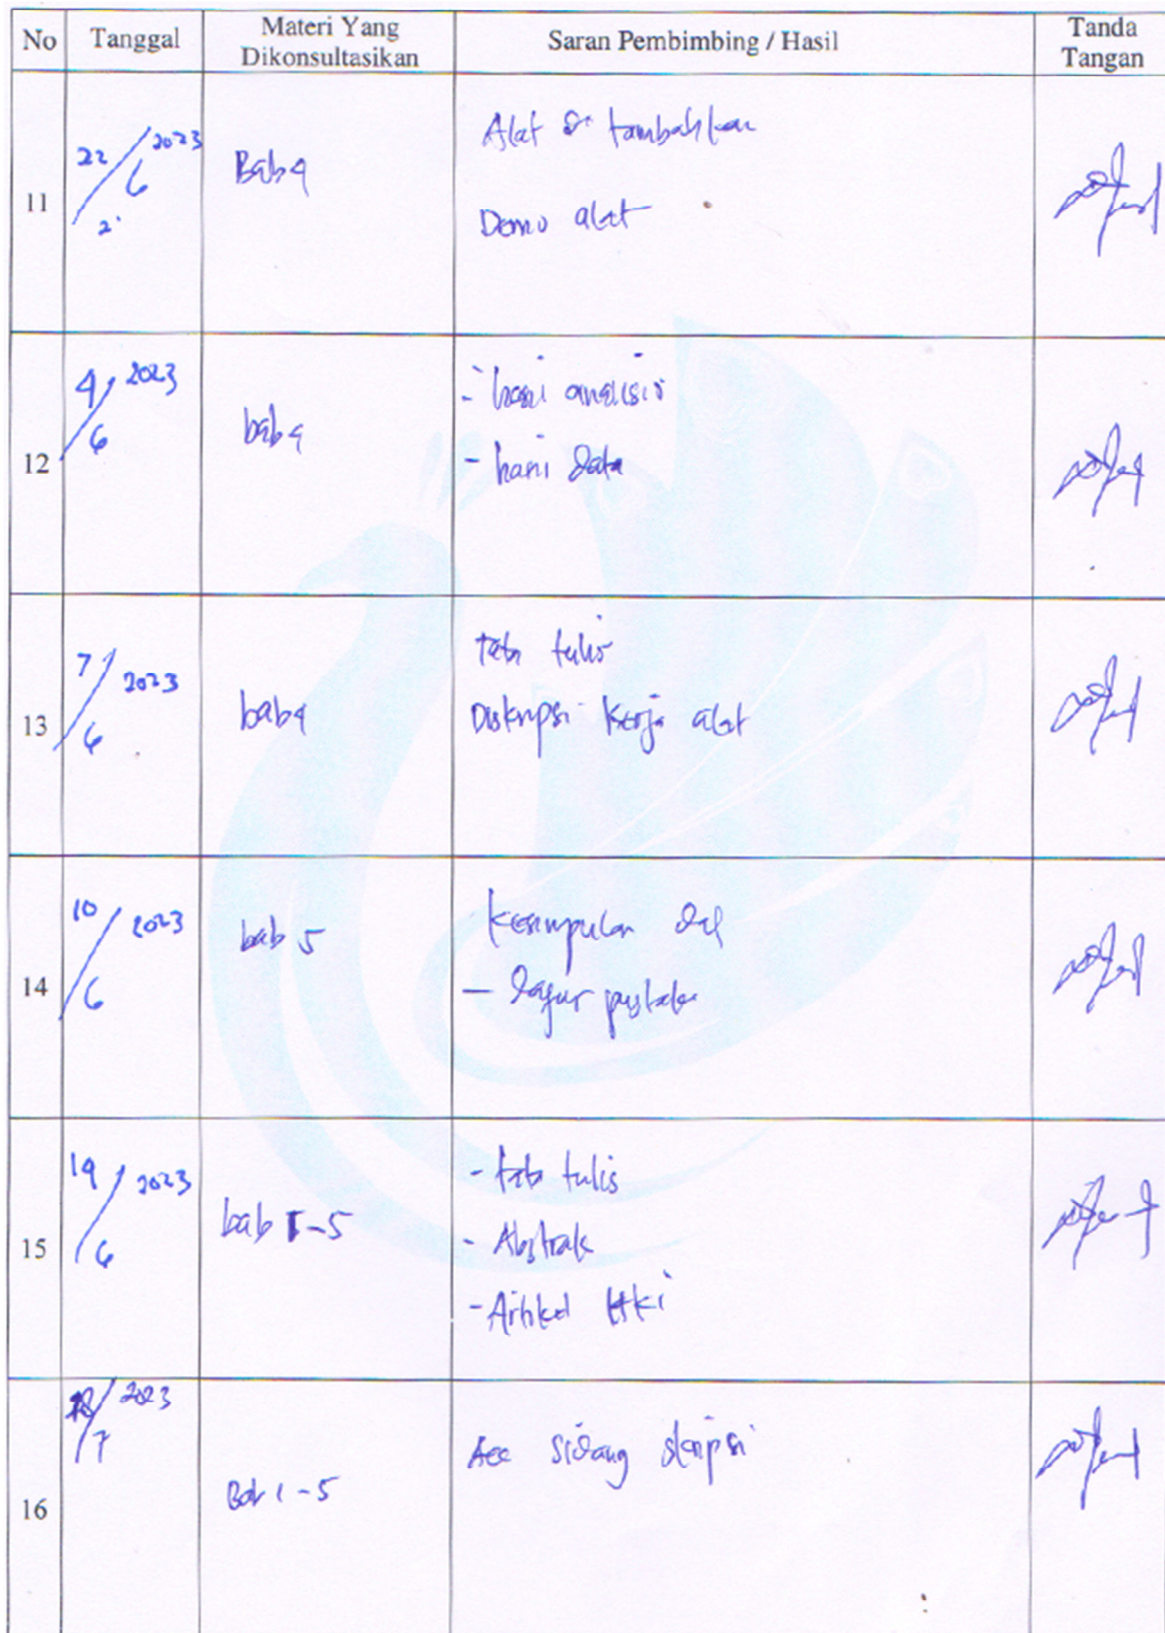 No Tanggal Materi Yang Dikonsultasikan Saran Pembimbing / Hasil Tanda Tangan
11 22/6 2023 Bab 4 Alat di tambahkan
Demo alat
12 4/6 2023 bab 4 - hasil analisis
- hasil data
13 7/6 2023 bab 4 tata tulis
Diskripsi kerja alat
14 10/6 2023 bab 5 Kesimpulan
- daftar pustaka
15 19/6 2023 bab 1-5 - tata tulis
- Abstrak
- Artikel HKI
16 /7 2023 Bab 1-5 Acc sidang skripsi